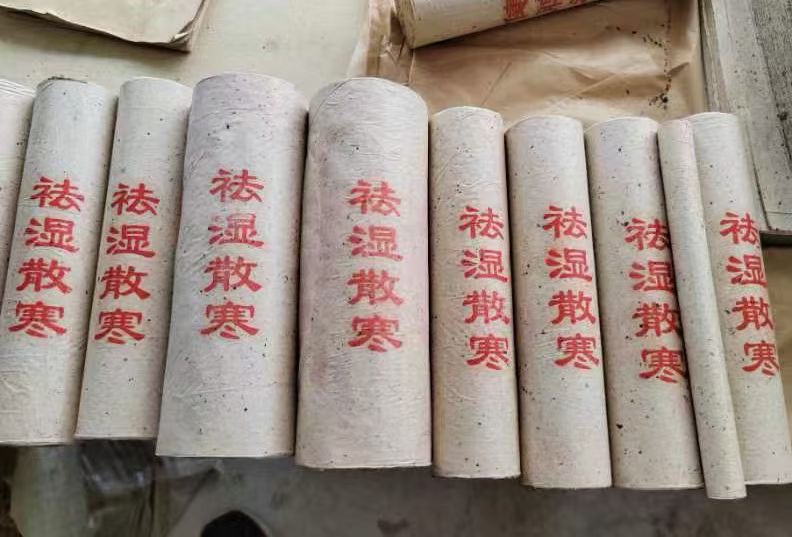 祛湿散寒
祛湿散寒
祛湿散寒
祛湿散寒
祛湿散寒
祛湿散寒
祛湿散寒
祛湿散寒